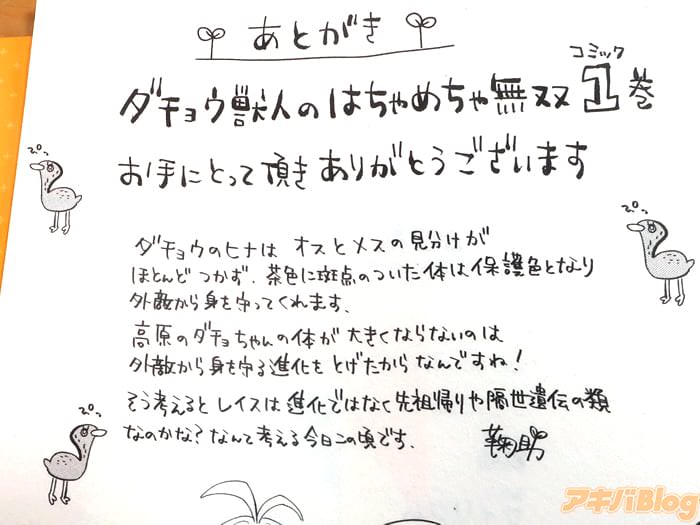 あとがき
ダチョウ獣人のはちゃめちゃ無双 コミック 1巻
お手にとって頂きありがとうございます
ぴっ
ぴっ
ダチョウのヒナは オスとメスの見分けが
ほとんどつかず、茶色に斑点のついた体は保護色となり
外敵から身を守ってくれます、
高原のダチョちゃんの体が 大きくならないのは
外敵から身を守る進化をとげたからなんですね!
ぴっ
そう考えるとレイスは進化ではなく先祖帰りや隔世遺伝の類
なのかな?なんて考える今日この頃です、 鞠助
アキバBlog